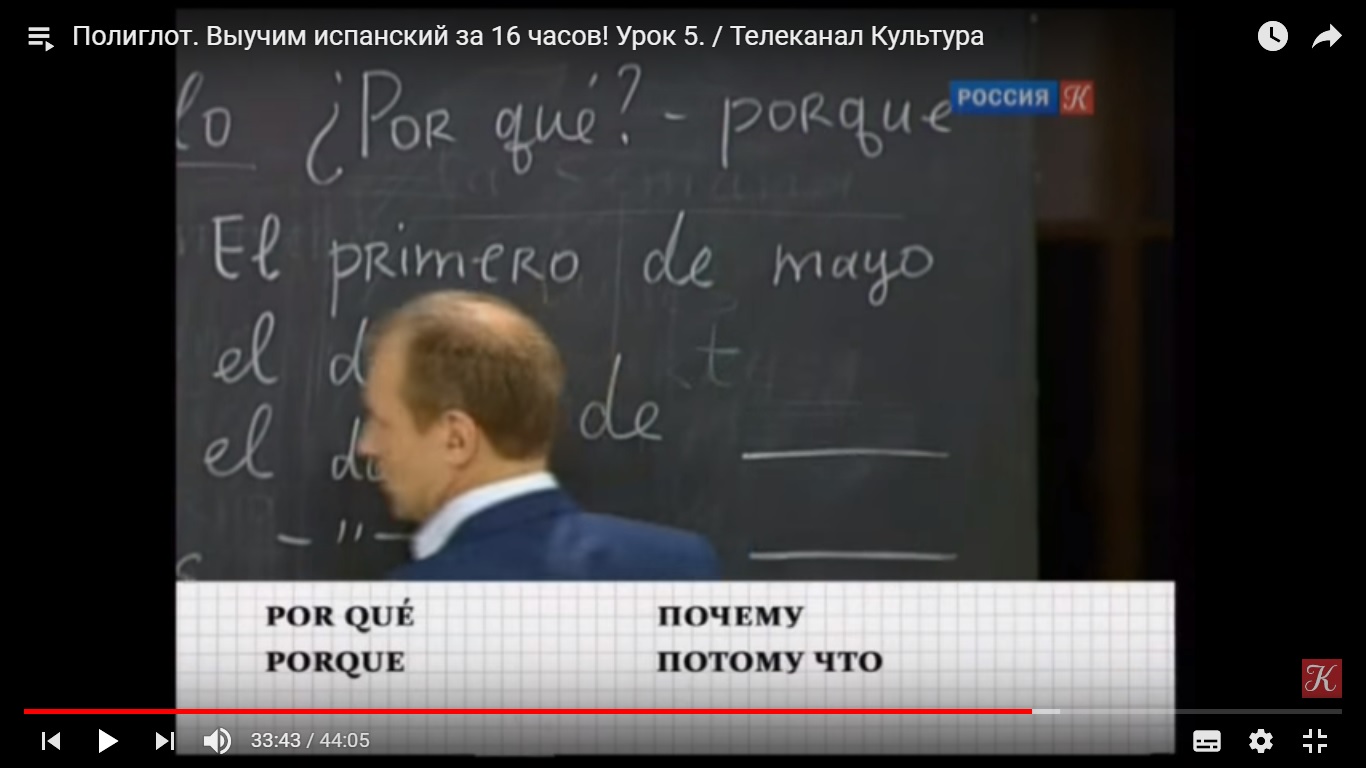 Полиглот. Выучим испанский за 16 часов! Урок 5. / Телеканал Культура
РОССИЯ К
lo ¿Por qué? - porque
El primero de mayo
el
el de
- " -
POR QUÉ ПОЧЕМУ
PORQUE ПОТОМУ ЧТО
К
33:43 / 44:05